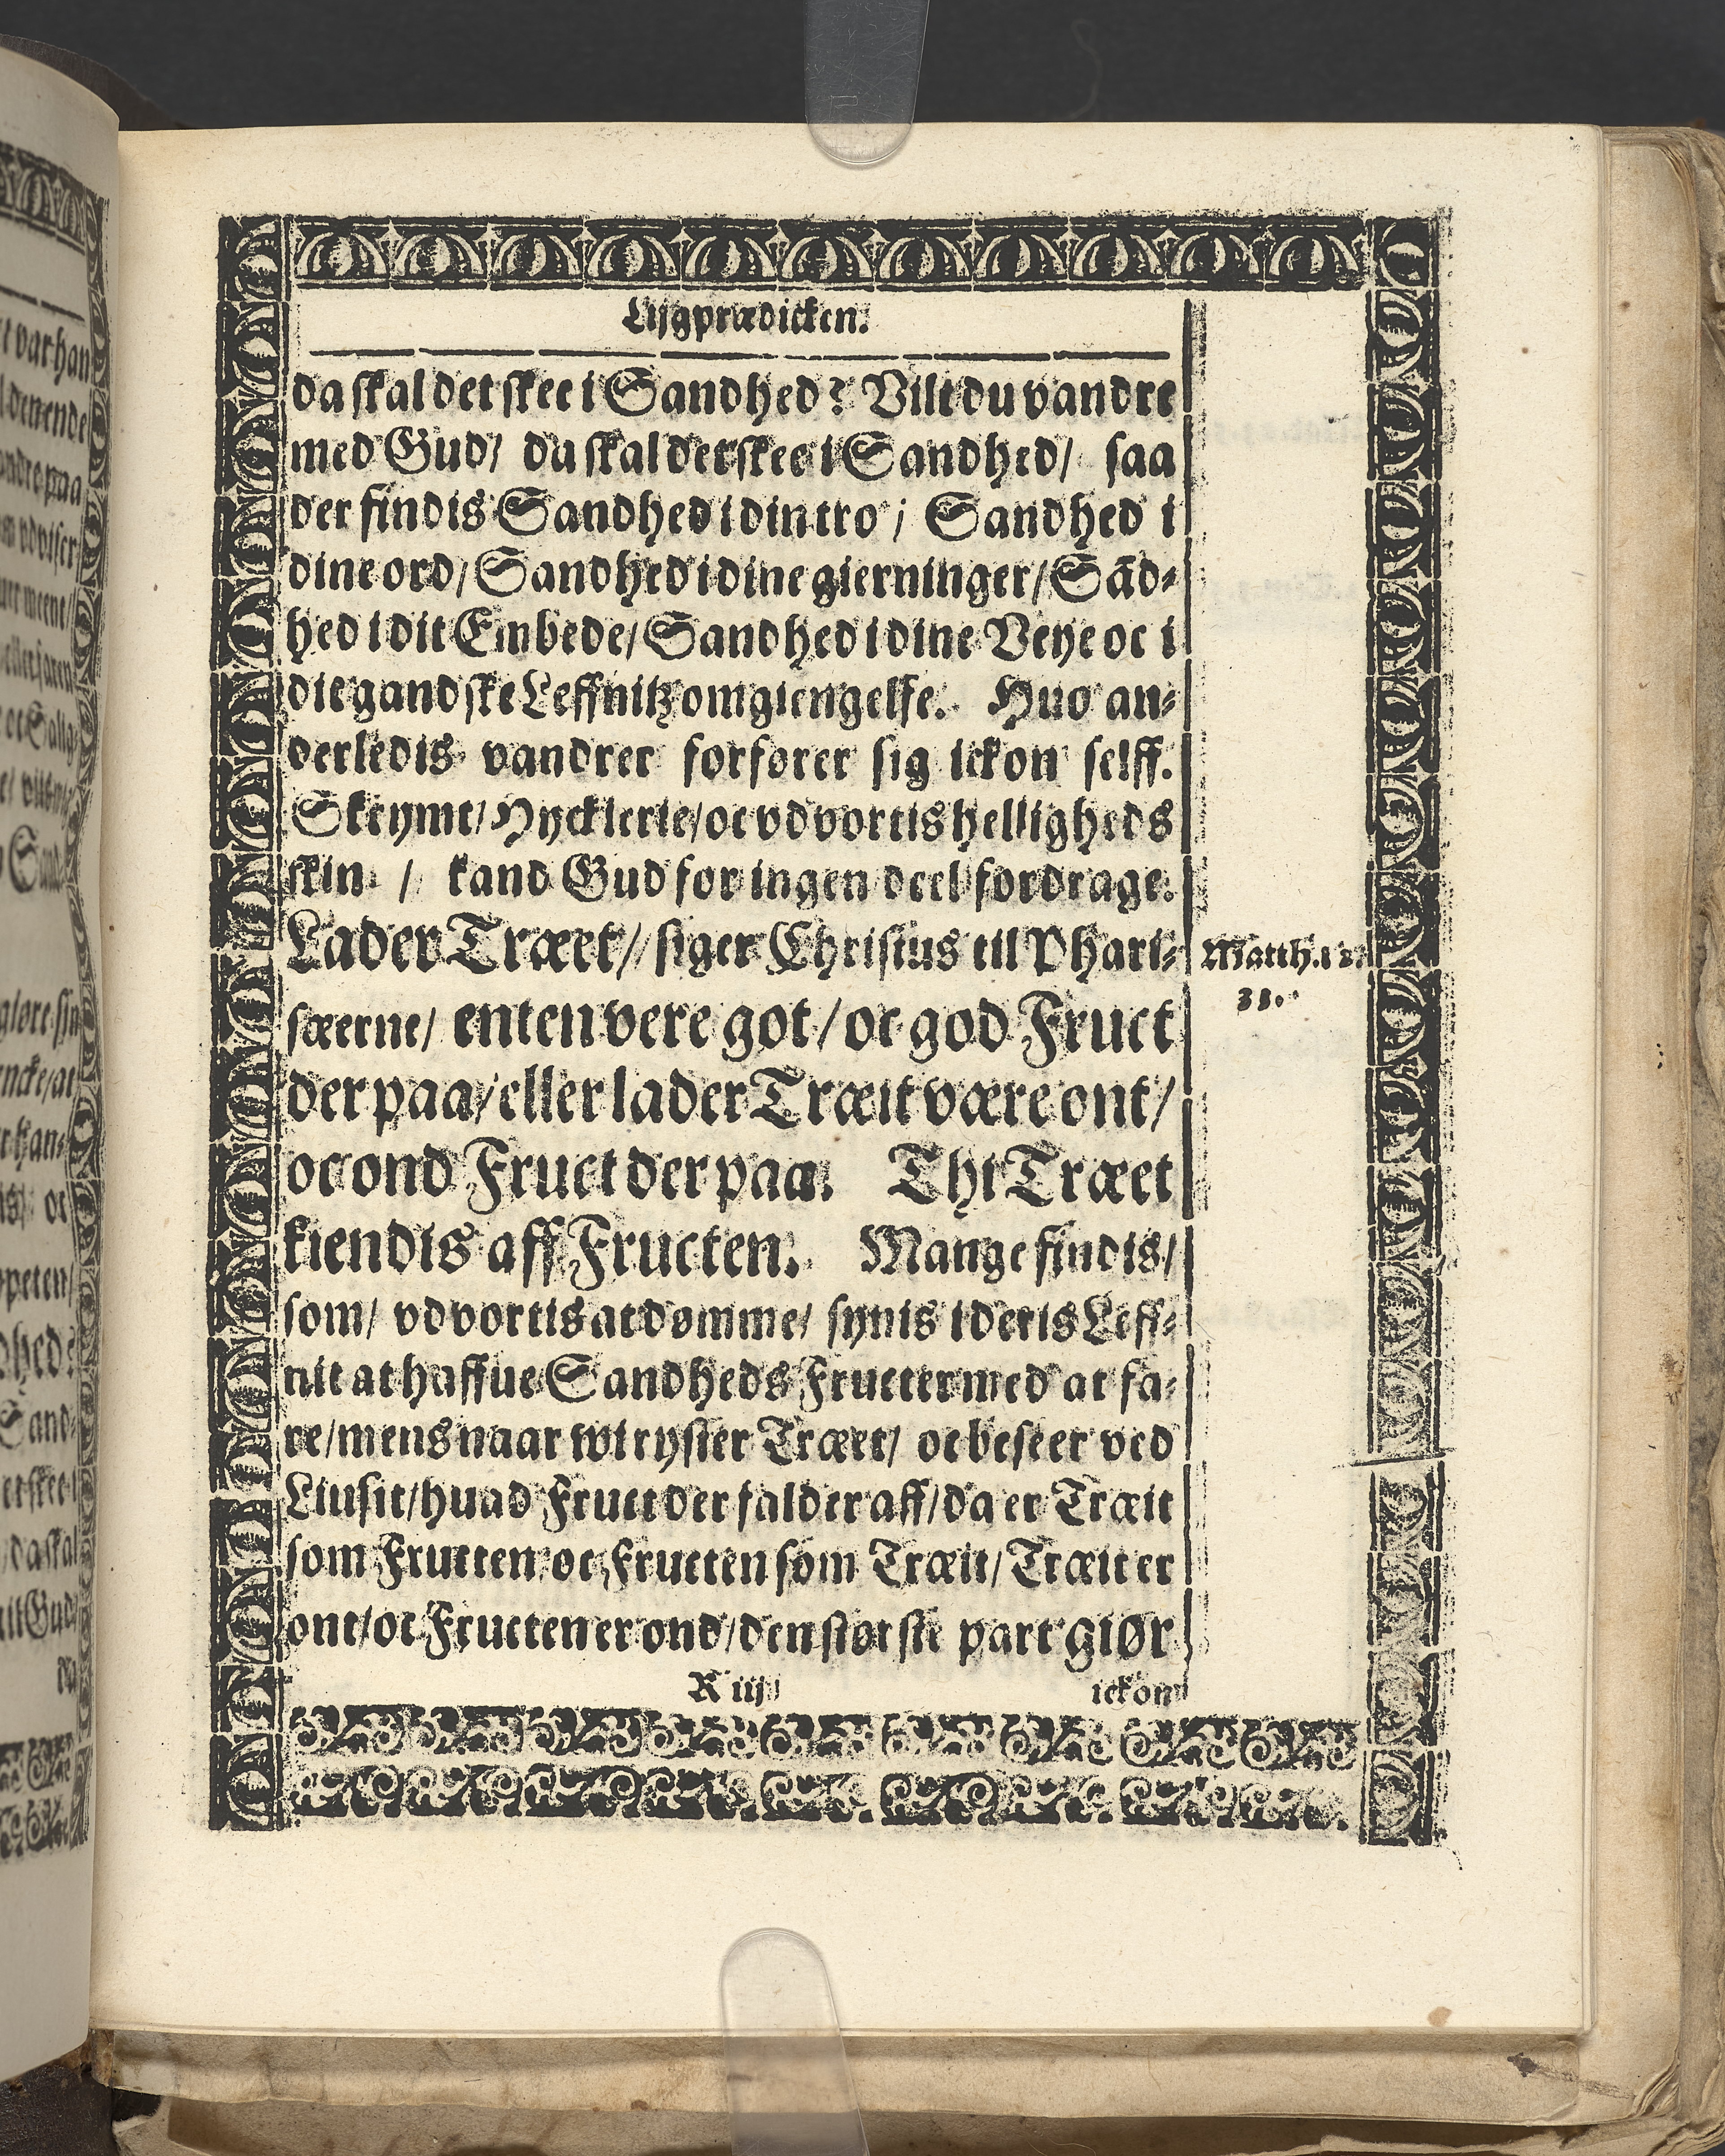 Lijgprædicken.
da skal det skee i Sandhed? Vilt du vandre
med Gud/ da skal det skee i Sandhed/ saa
der findis Sandhed i din tro/ Sandhed i
dine ord/ Sandhed i dine gierninger/ Sād-
hed i dit Embede/ Sandhed i dine Veye oc i
dit gandske Leffnitz omgiengelse. Huo an-
derledis vandrer forfører sig ickon selff.
Skrymt/ Hycklerie/ oc vdvortis helligheds
skin / kand Gud for ingen deel fordrage.
Lader Træet/ siger Christus til Phari-
sæerne/ enten vere got/ oc god Fruct
der paa/ eller lader Træit være ont/
oc ond Fruct der paa. Thi Træet
kiendis aff Fructen. Mange findis/
som/ vdvortis at dømme/ synis i deris Leff-
nit at haffue Sandheds Fructer med at fa-
re/ mens naar wi ryster Træet/ oc beseer ved
Liusit/ huad Fruct der falder aff/ da er Træit
som Fructen oc Fructen som Træit/ Træit er
ont/ oc Fructen er ond/ den største part giør
R iij
ickon
Matth. 12.
33.